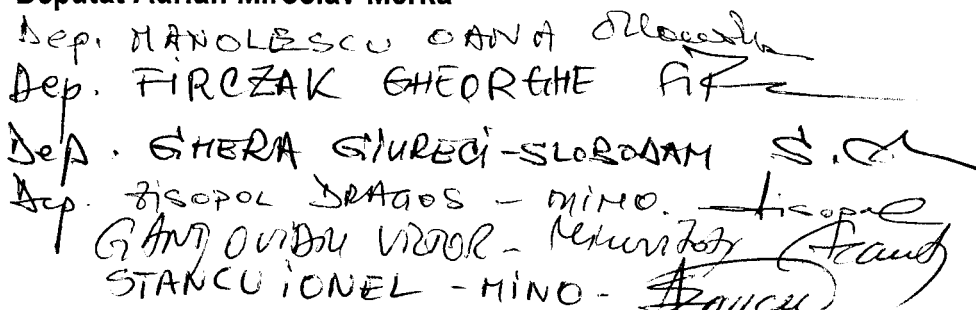 Deputat Adrian-Miroslav Merka
Dep. MANOLESCU OANA
Dep. FIRCZAK GHEORGHE
Dep. GHERA GIURECI-SLOBODAM S.
Dep. ZISOPOL DRAGOS - MINO. Zisopol
GANȚ OVIDIU VICTOR - Minorități Gant
STANCU IONEL - MINO - Stancu